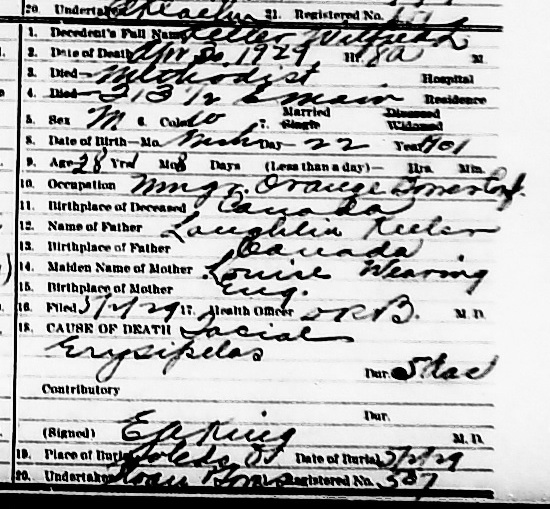 20. Undertaker 21. Registered No.
1. Decedent's Full Name Keller Wilfred
2. Date of Death Apr 30, 1929 Hr. 8 a M.
3. Died— Methodist Hospital
4. Died— 313 1/2 E Main Residence
5. Sex M 6. Color W 7. Married Single Diseased Widowed
8. Date of Birth—Mo. Day 22 Year 1901
9. Age 28 Yrs Mos Days (Less than a day)— Hrs. Min.
10. Occupation Mngr. Orange
11. Birthplace of Deceased Canada
12. Name of Father Laughlin
13. Birthplace of Father Canada
14. Maiden Name of Mother Louise Wearing
15. Birthplace of Mother Eng.
16. Filed 5/2/29 17. Health Officer M. D.
18. CAUSE OF DEATH Facial
Erysipelas
Dur. 5
Contributory
Dur.
(Signed) E A King M. D.
19. Place of Burial Toledo O Date of Burial 5/2/29
20. Undertaker Registered No. 587